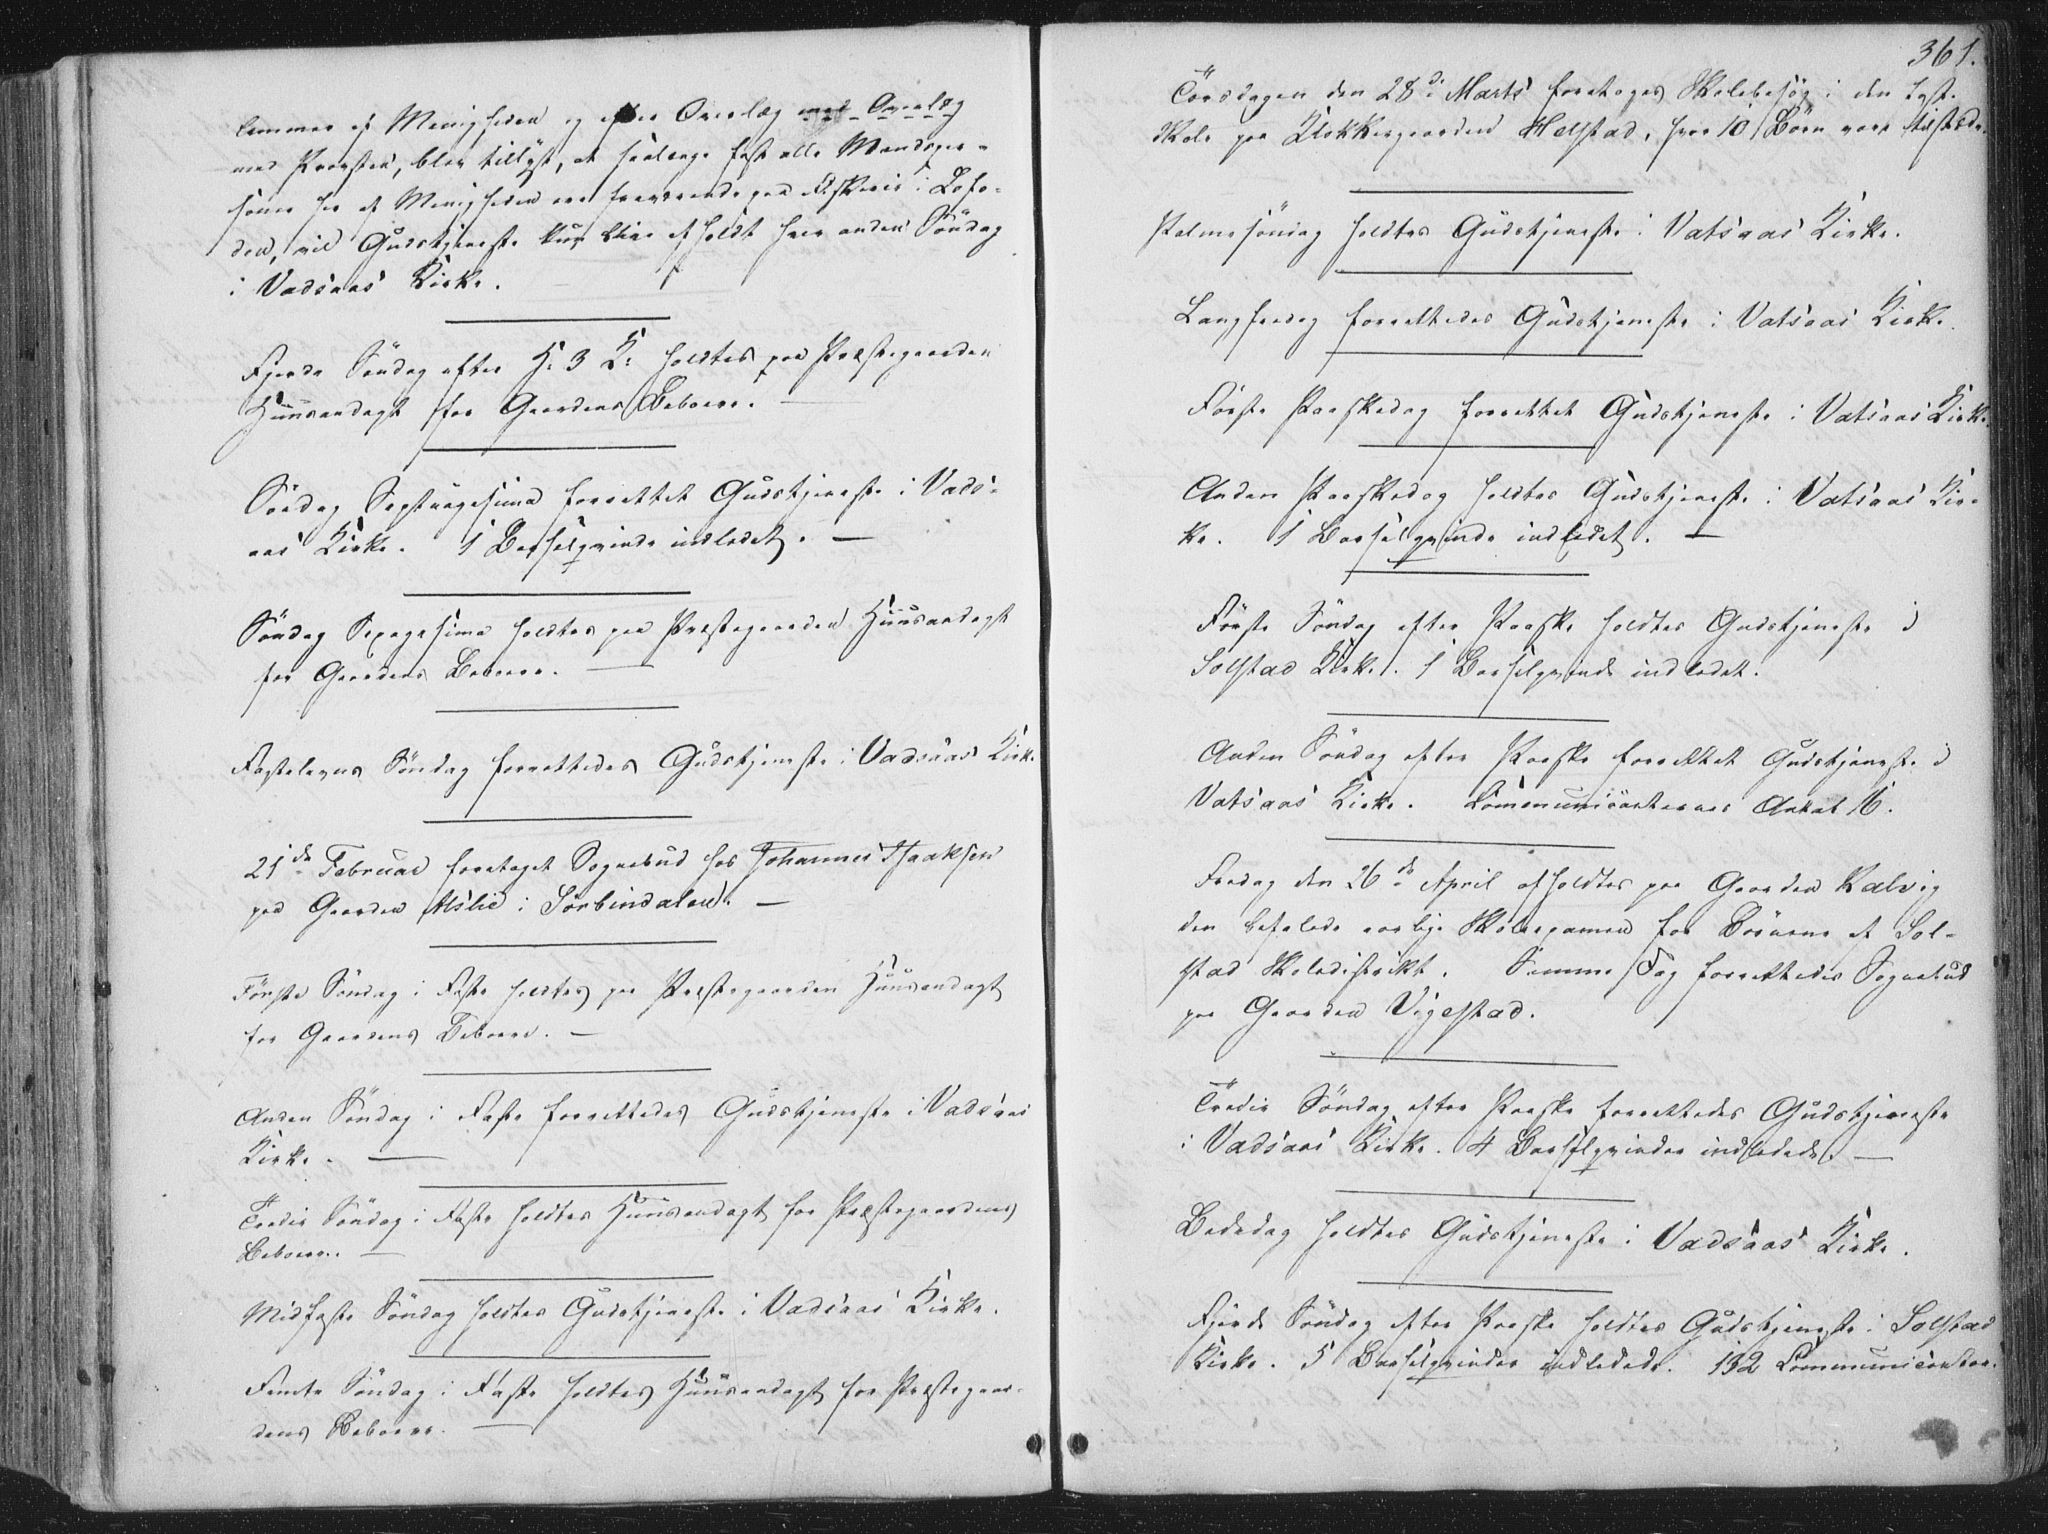 lemmer af Menigheden og efter Overlæg med Overlæg
med Provsten, blev tillyst, at saalænge fast alle Mandsper-
soner her af Menigheden ere fraværende paa Fiskerie i Lofo-
den, vil Gudstjeneste kun blive afholdt hver anden Söndag
i Vadsaas Kirke.
Fjerde Söndag efter H: 3 K: holdtes paa Præstegaarden
Huusandagt for Gaardens Beboere. —
Söndag Septuagesima forrettet Gudstjeneste i Vads-
aas Kirke. 1 Barselqvinde indledet. —
Söndag Sexagesima holdtes paa Præstegaarden Huusandagt
for Gaardens Beboere. —
Fastelavns Söndag forrettedes Gudstjeneste i Vadsaas Kirke
21de Februar foretaget Sognebud hos Johannes Isaaksen
paa Gaarden Aslie i Sörbindalen. —
Förste Söndag i Faste holdtes paa Præstegaarden Huusandagt
for Gaardens Beboere. —
Anden Söndag i Faste forrettedes Gudstjeneste i Vadsaas
Kirke. —
Tredie Söndag i Faste holdtes Huusandagt for Præstegaardens
Beboere. —
Midfaste Söndag holdtes Gudstjeneste i Vadsaas Kirke.
Femte Söndag i Faste holdtes Huusandagt for Præstegaar-
dens Beboere. —
361.
Törsdagen den 28de Marts foretoges Skolebesög i den faste
Skole paa Klokkergaarden Helstad, hvor 10 Börn vare tilstæde.
Palmesöndag holdtes Gudstjeneste i Vatsaas Kirke.
Langfredag forrettedes Gudstjeneste i Vatsaas Kirke.
Förste Paaskedag forrettet Gudstjeneste i Vatsaas Kirke.
Anden Paaskedag holdtes Gudstjeneste i Vatsaas Kir-
ke. 1 Barselqvinde indledet. —
Förste Söndag efter Paaske holdtes Gudstjeneste i
Solstad Kirke. 1 Barselqvinde indledet.
Anden Söndag efter Paaske forrettet Gudstjeneste i
Vatsaas Kirke. Communicanternes Antal 16.
Fredag den 26de April afholdtes paa Gaarden Kalvig
den befalede aarlige Skoleexamen for Börnene af Sol-
stad Skoledistrikt. Samme Dag forrettedes Sognebud
paa Gaarden Vigestad.
Tredie Söndag efter Paaske forrettedes Gudstjeneste
i Vadsaas Kirke. 4 Barselqvinder indledede. —
Bededag holdtes Gudstjeneste i Vadsaas Kirke.
Fjerde Söndag efter Paaske holdtes Gudstjeneste i Solstad
Kirke. 5 Barselqvinder indledede. 132 Communicanter.